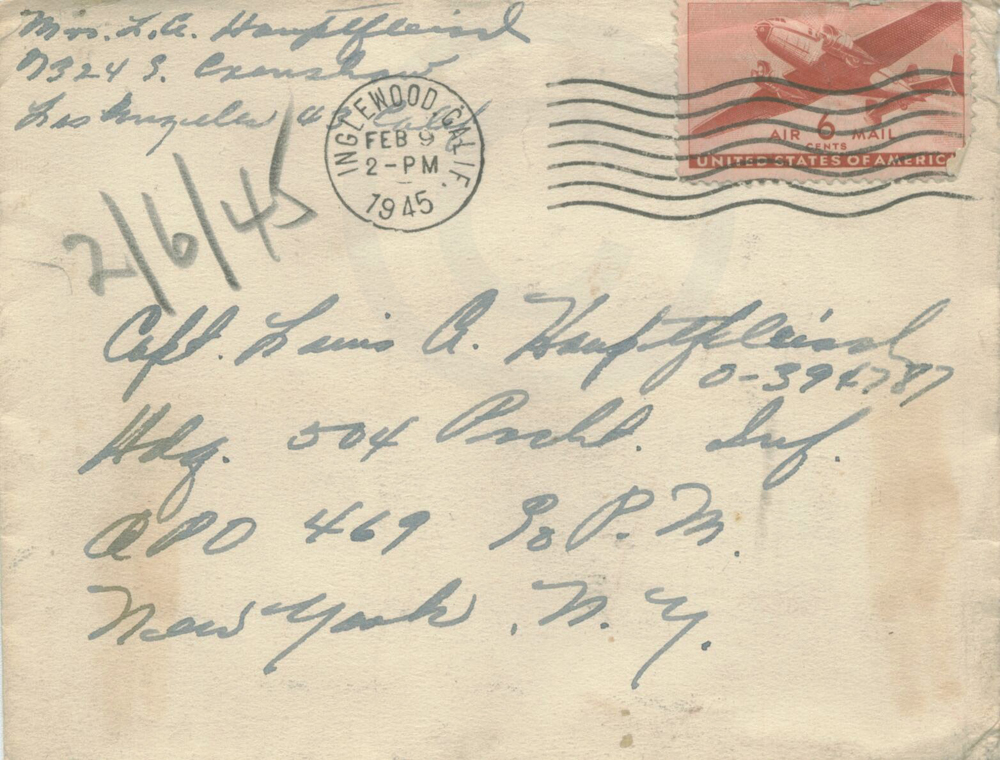 Mrs. L. A. Hauptfleisch
7324 S. Crenshaw
Los Angeles Calif
INGLEWOOD, CALIF.
FEB 9
2-PM
1945
AIR 6 MAIL
CENTS
UNITED STATES OF AMERICA
2/6/45
Capt. Louis A. Hauptfleisch
O-394787
Hdq. 504 Pracht. Inf.
APO 469 % P.M.
New York, N.Y.